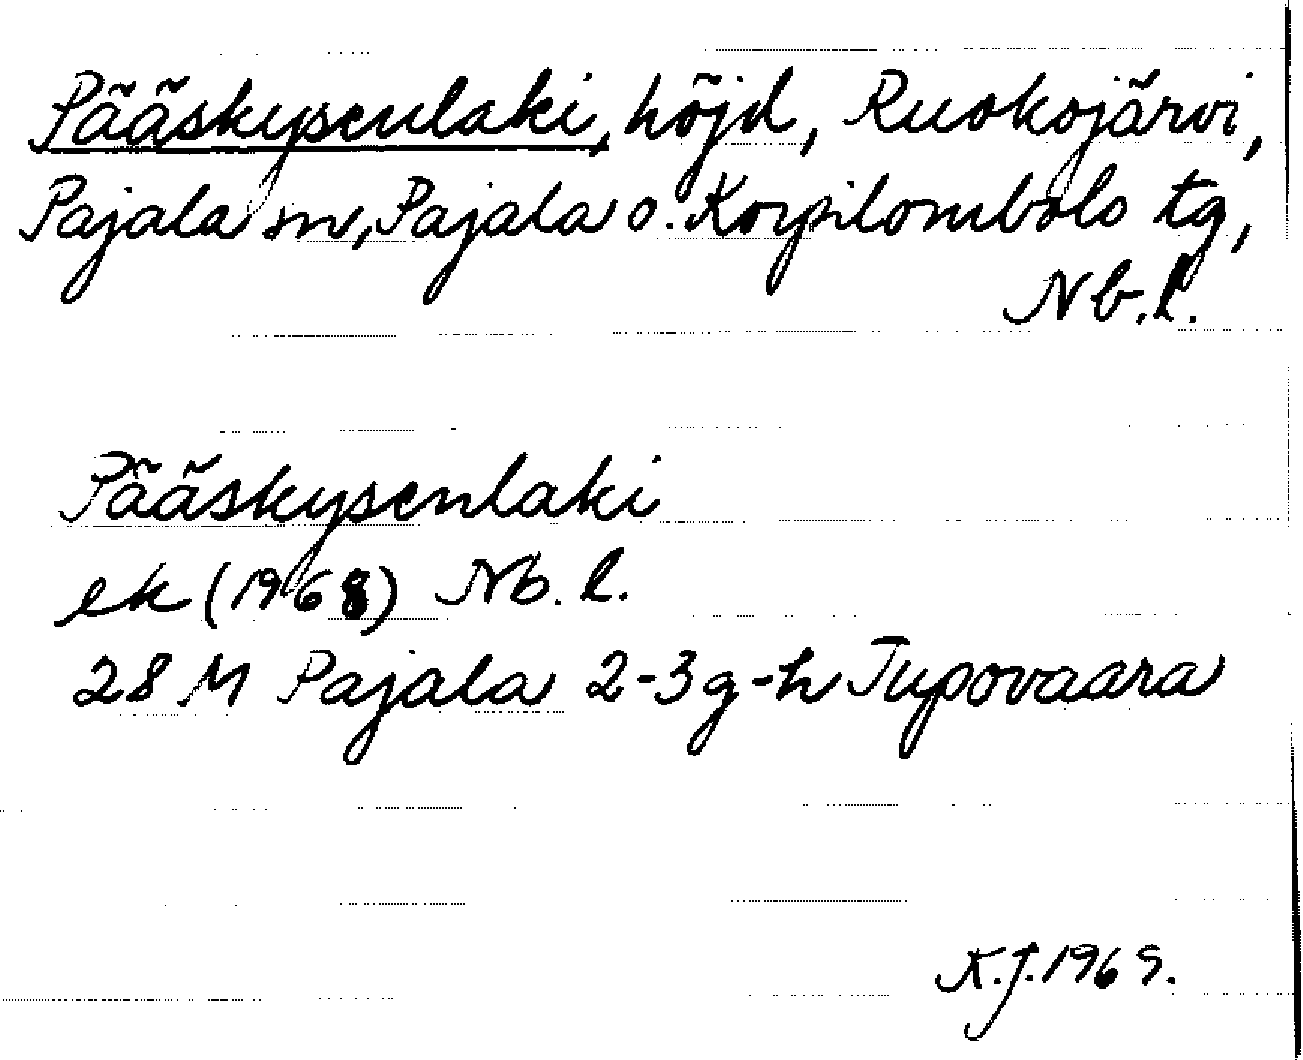 Pääskysenlaki, höjd, Ruokojärvi,
Pajala sn, Pajala o. Korpilombolo tg,
Nb.l.
Pääskysenlaki
ek (1968) Nb. l.
28 M Pajala 2-3 g-h Jupovaara
K.J. 1969.